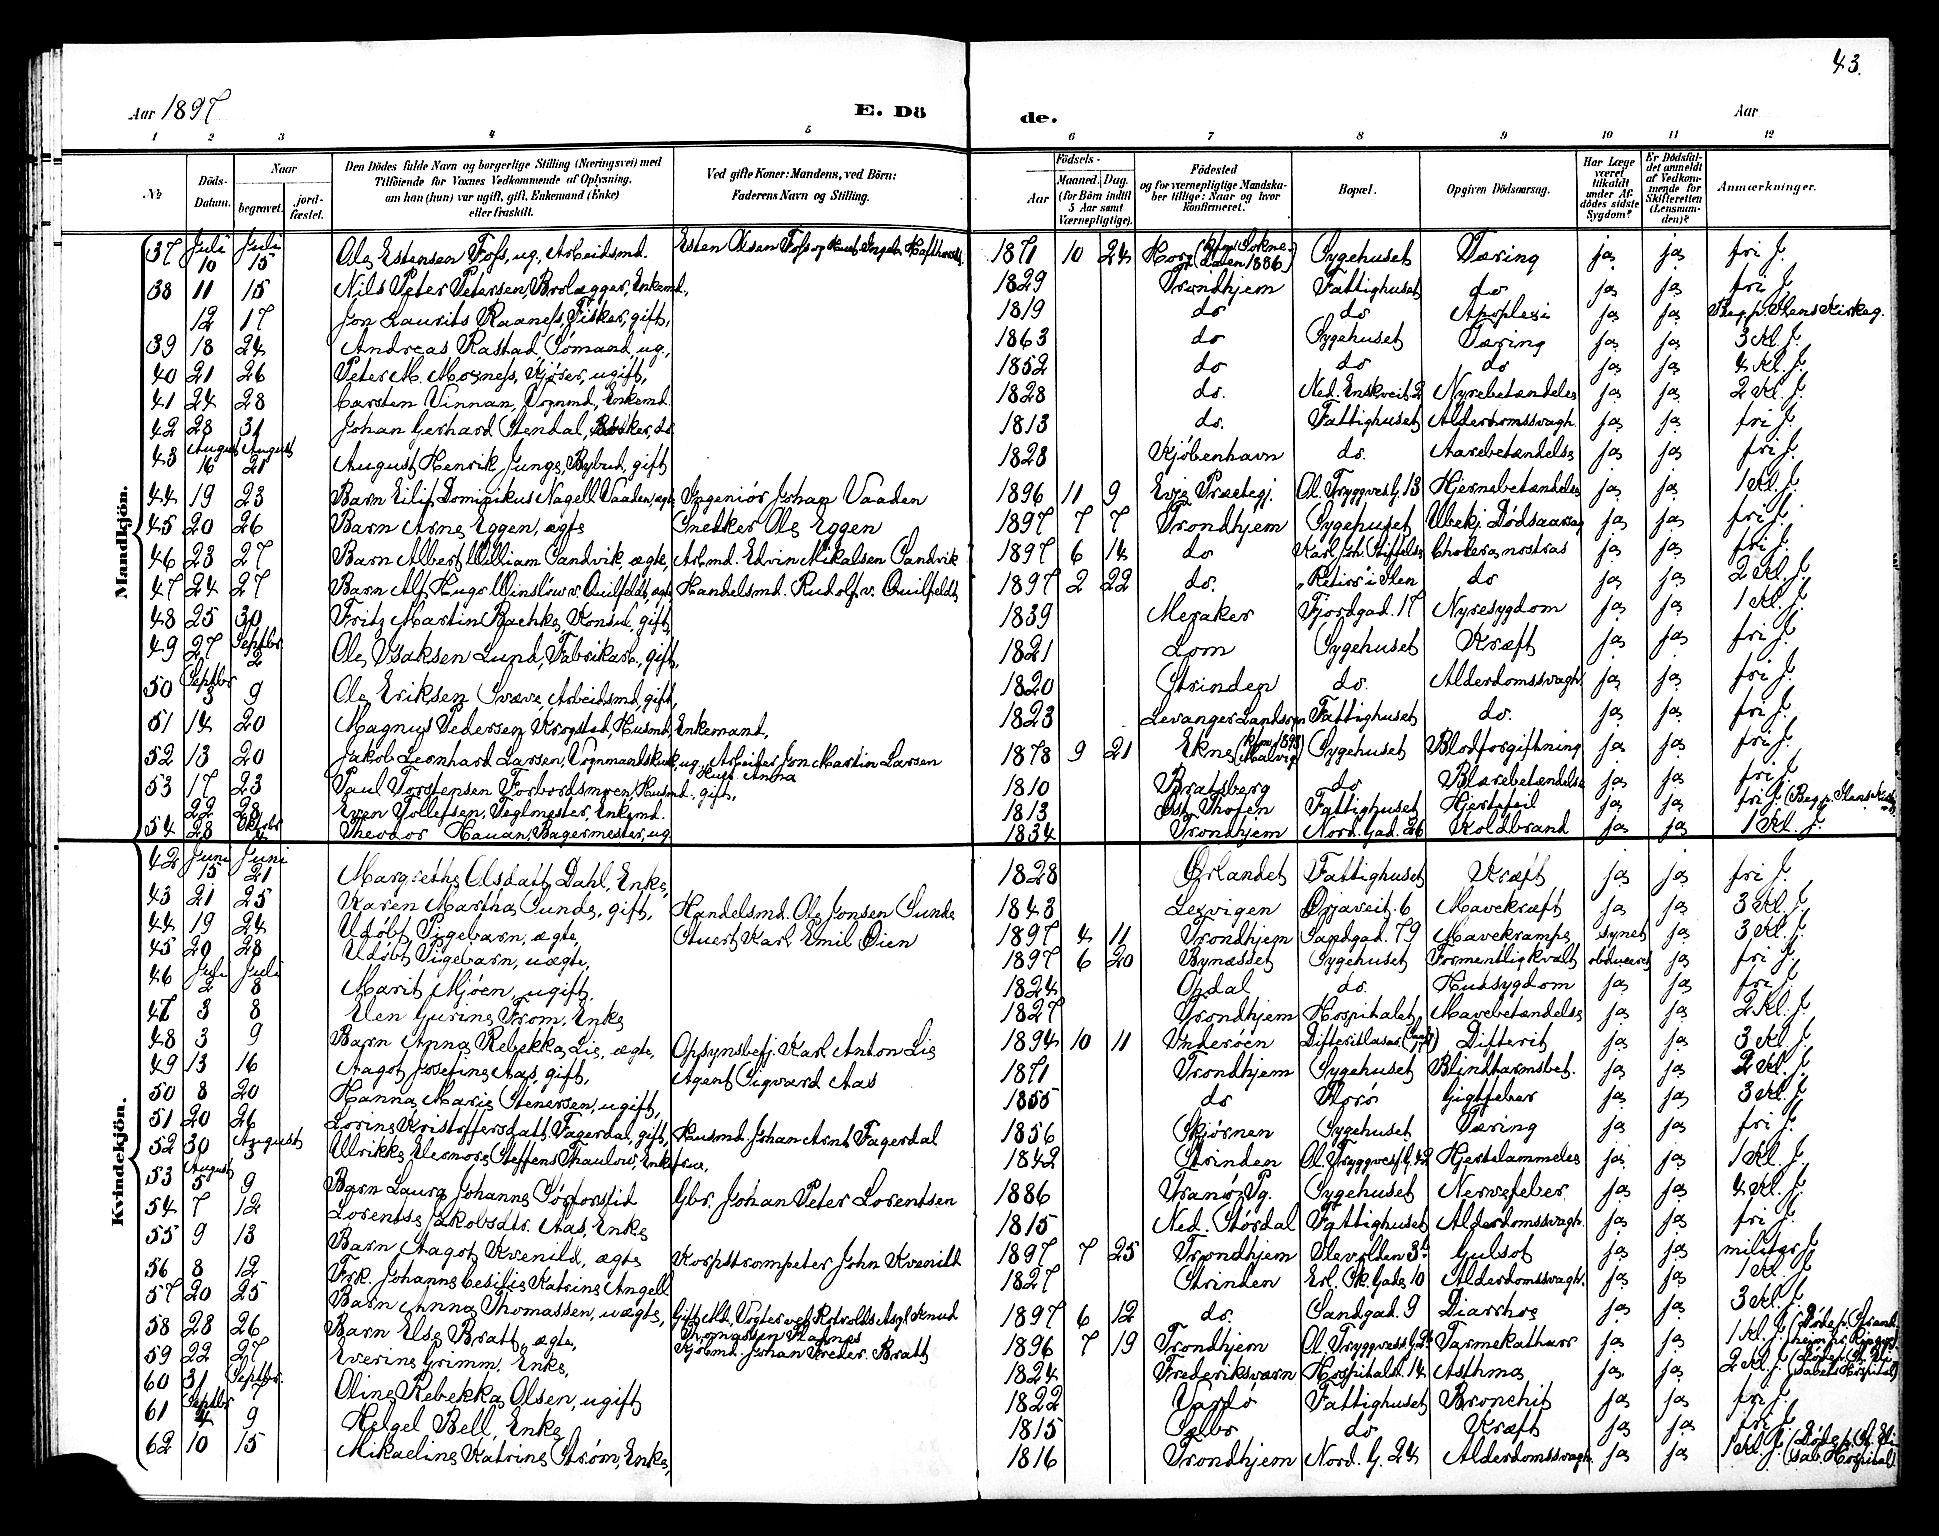 43.
Aar 1897 E. Dö de. Aar
1 2 3 4 5 6 7 8 9 10 11 12
№ Döds-Datum. Naar begravet. jordfæstet. Den Dödes fulde Navn og borgerlige Stilling (Næringsvei) med Tilföiende for Voxnes Vedkommende af Oplysning, om han (hun) var ugift, gift, Enkemand (Enke) eller fraskilt. Ved gifte Koner: Mandens, ved Börn: Faderens Navn og Stilling. Födsels- Aar Maaned. Dag. (for Börn indtil 5 Aar samt Værnepligtige). Födested og for værnepligtige Mandskaber tillige: Naar og hvor konfirmeret. Bopæl. Opgiven Dödsaarsag. Har Læge været tilkaldt under Afdödes sidste Sygdom? Er Dödsfaldet anmeldt af Vedkommende for Skifteretten (Lensmanden)? Anmærkninger.
Mandkjön.
37 Juli 10 Juli 15 Ole Estensen Foss, ug, Arbeidsmd. Esten Olsen Foss og Hust. Ingeb. 1871 10 24 Horg (kfm. Sokne- dalen 1886) Sygehuset Tæring ja ja fri J.
38 11 15 Nils Peter Petersen, Brolægger, Enkemd, 1829 Trondhjem Fattighuset do ja ja fri J.
12 17 Jon Laurits Raaness, Fisker, gift, 1819 do do Apoplexi ja ja Beg. p. Ilens Kirkeg.
39 18 24 Andreas Rastad, Sømand, ug., 1863 do Sygehuset Tæring ja ja 3 Kl. J.
40 21 26 Peter M. Moxness, Kjører, ugift, 1852 do do do ja ja 4 Kl. J.
41 24 28 Carsten Vinnan, Vognmd, Enkemd. 1828 do. Ned. Enkveit. 2 Nyrebetændelse ja ja 2 Kl. J.
42 28 31 Johan Gerhard Stendal, Bøsker, do 1813 do. Fattighuset Alderdomssvagh. ja ja fri J.
43 August 16 August 21 August Henrik Junge, Bybud, gift 1828 Kjøbenhavn do. Aarebetændelse ja ja fri J.
44 19 23 Barn Eilif Dominikus Nagell Vaaden, ægte Ingeniør Johan Vaaden 1896 11 9 Evje Præstegj. Ol. Tryggves. G. 13 Hjernebetændelse ja ja 1 Kl. J.
45 20 26 Barn Arne Eggen, ægte Snedker Ole Eggen 1897 7 7 Trondhjem Sygehuset Ubekj. Dødsaarsag ja ja fri J.
46 23 27 Barn Albert William Sandvik, ægte, Arbmd. Edvin Mikalsen Sandvik 1897 6 14 do Karl Joh. Stiftelse Cholera nostras ja ja fri J.
47 24 27 Barn Alf Hugo Winsløw v. Quilfeldt, ægte Handelsmd. Rudolf v. Quilfeldt 1897 2 22 do. "Retiro" i Ilen do ja ja 2 Kl. J.
48 25 30 Fritz Martin Bachke, Konsul, gift, 1839 Meraker Fjordgad. 17 Nyresygdom ja ja 1 Kl. J.
49 27 Septbr. 2 Ole Isaksen Lund, Fabrikarb., gift, 1821 Lom Sygehuset Kræft ja ja fri J.
50 Septbr 3 9 Ole Eriksen Svæve, Arbeidsmd, gift, 1820 Strinden do. Alderdomssvagh. ja ja fri J.
51 14 20 Magnus Pedersen Krogstad, Husmd, Enkemand, 1823 Levanger Landsogn Fattighuset do. ja ja fri J.
52 13 20 Jakob Leonhard Larsen, Vognmandskusk, ug., Arbeider Jon Martin Larsen Hust. Anna 1878 9 21 Ekne (kfm. 1893 Malvig) Sygehuset Blodforgiftning ja ja fri J.
53 17 23 Paul Torstensen Forbordsmoen, Husmd. gift, 1810 Bratsberg do Blærebetændelse ja ja fri J.
22 28 Even Tollefsen, Teglmester, Enkemd. 1813 Øst. Thoten Fattighuset Hjertefeil ja ja fri J. (Beg. p. Ilens Kirkeg.
54 28 Oktbr. 4 Theodor Hauan, Bagermester, ug 1834 Trondhjem Nord. Gad. 26 Koldbrand ja ja 1 Kl. J.
Kvindekjön.
42 Juni 15 Juni 21 Margrethe Olsdatt. Dahl, Enke, 1828 Ørlandet Fattighuset Kræft ja ja fri J.
43 21 25 Karen Martha Sunde, gift, Handelsmd. Ole Jonsen Sunde 1843 Lexvigen Ørjaveit. 6 Mavekræft ja ja 3 Kl. J.
44 19 24 Udøbt Pigebarn, ægte, Stuert Karl Emil Øien 1897 4 11 Trondhjem Sandgad. 79 Mavekrampe synet ja 3 Kl. J.
45 20 28 Udøbt Pigebarn, uægte, 1897 6 20 Bynæsset Sygehuset Formentlig kvalt obduceret ja fri J.
46 Juli 2 Juli 8 Marit Mjøen, ugift. 1824 Opdal do. Hudsygdom ja ja fri J.
47 3 8 Elen Gurine From, Enke 1827 Trondhjem Hospitalet Mavebetændelse ja ja 2 Kl. J.
48 3 9 Barn Anna Rebekka Lie, ægte, Opsynsbetj. Karl Anton Lie 1894 10 11 Ynderøen Difteritlasar. Difterit ja ja 3 Kl. J.
49 13 16 Aagot Josefine Aas, gift, Agent Sigvard Aas 1871 Trondhjem Sygehuset Blindtarmsbet. ja ja 2 Kl. J.
50 8 20 Hanna Marie Stenersen, ugift, 1855 do Korø Gigtfeber ja ja 3 Kl. J.
51 20 26 Lorine Kristoffersdatt. Fagerdal, gift, Husmd. Johan Arnt Fagerdal 1856 Skjørnen Sygehuset Tæring ja ja fri J.
52 30 August 3 Ulrikke Eleonore Steffens Thaulow, Enkefrue, 1842 Strinden Ol. Tryggvess. G. 42 Hjertelammelse ja ja 1 Kl. J.
53 August 5 9 Barn Laura Johanne Sørforstid Gbr. Johan Peter Lorentsen 1886 Tranø Pg. Sygehuset Nervefeber ja ja 4 Kl. J.
54 7 12 Lorentse Jakobsdtr. Aas, Enke 1815 Ned. Størdal Fattighuset Alderdomssvagh. ja ja fri J.
55 9 13 Barn Aagot Kvenild, ægte Korpstrompeter John Kvenild 1897 7 25 Trondhjem Ilevolden 3b Gulsot ja ja militær J.
56 8 12 Frk. Johanne Cecilie Katrine Angell 1827 Strinden Erl. Sk. Gade 10 Alderdomssvagh. ja ja 1 Kl. J.
57 20 25 Barn Anna Thomassen, uægte, Gift Md, Vogter ved Rotvolds Asyl Knud Thomassen 1897 6 12 do. Sandgad. 9 Diarrhoe ja ja 3 Kl. J.
58 28 26 Barn Else Bratt, ægte, Kjøbmd. Johan Freder. Bratt 1896 7 19 Trondhjem Ol. Tryggvess. G. Tarmekatharr ja ja 1 Kl. J.
59 22 27 Everine Grimm, Enke, 1824 Frederiksværn Hospitalsl. 14 Asthma ja ja 2 Kl. J. (Døde p. St. Elisabets Hospital)
60 31 Septbr. 7 Oline Rebekka Olsen, ugift 1822 Vardø Fattighuset Bronchit ja ja fri J.
61 Septbr 4 9 Helgel Bell, Enke 1815 Selbo do Kræft ja ja fri J.
62 10 15 Mikaeline Katrine Strøm, Enke, 1816 Trondhjem Nord. G. 24 Alderdomssvagh. ja ja 1 Kl. J. (Døde p. St. Elisab. Hospital)